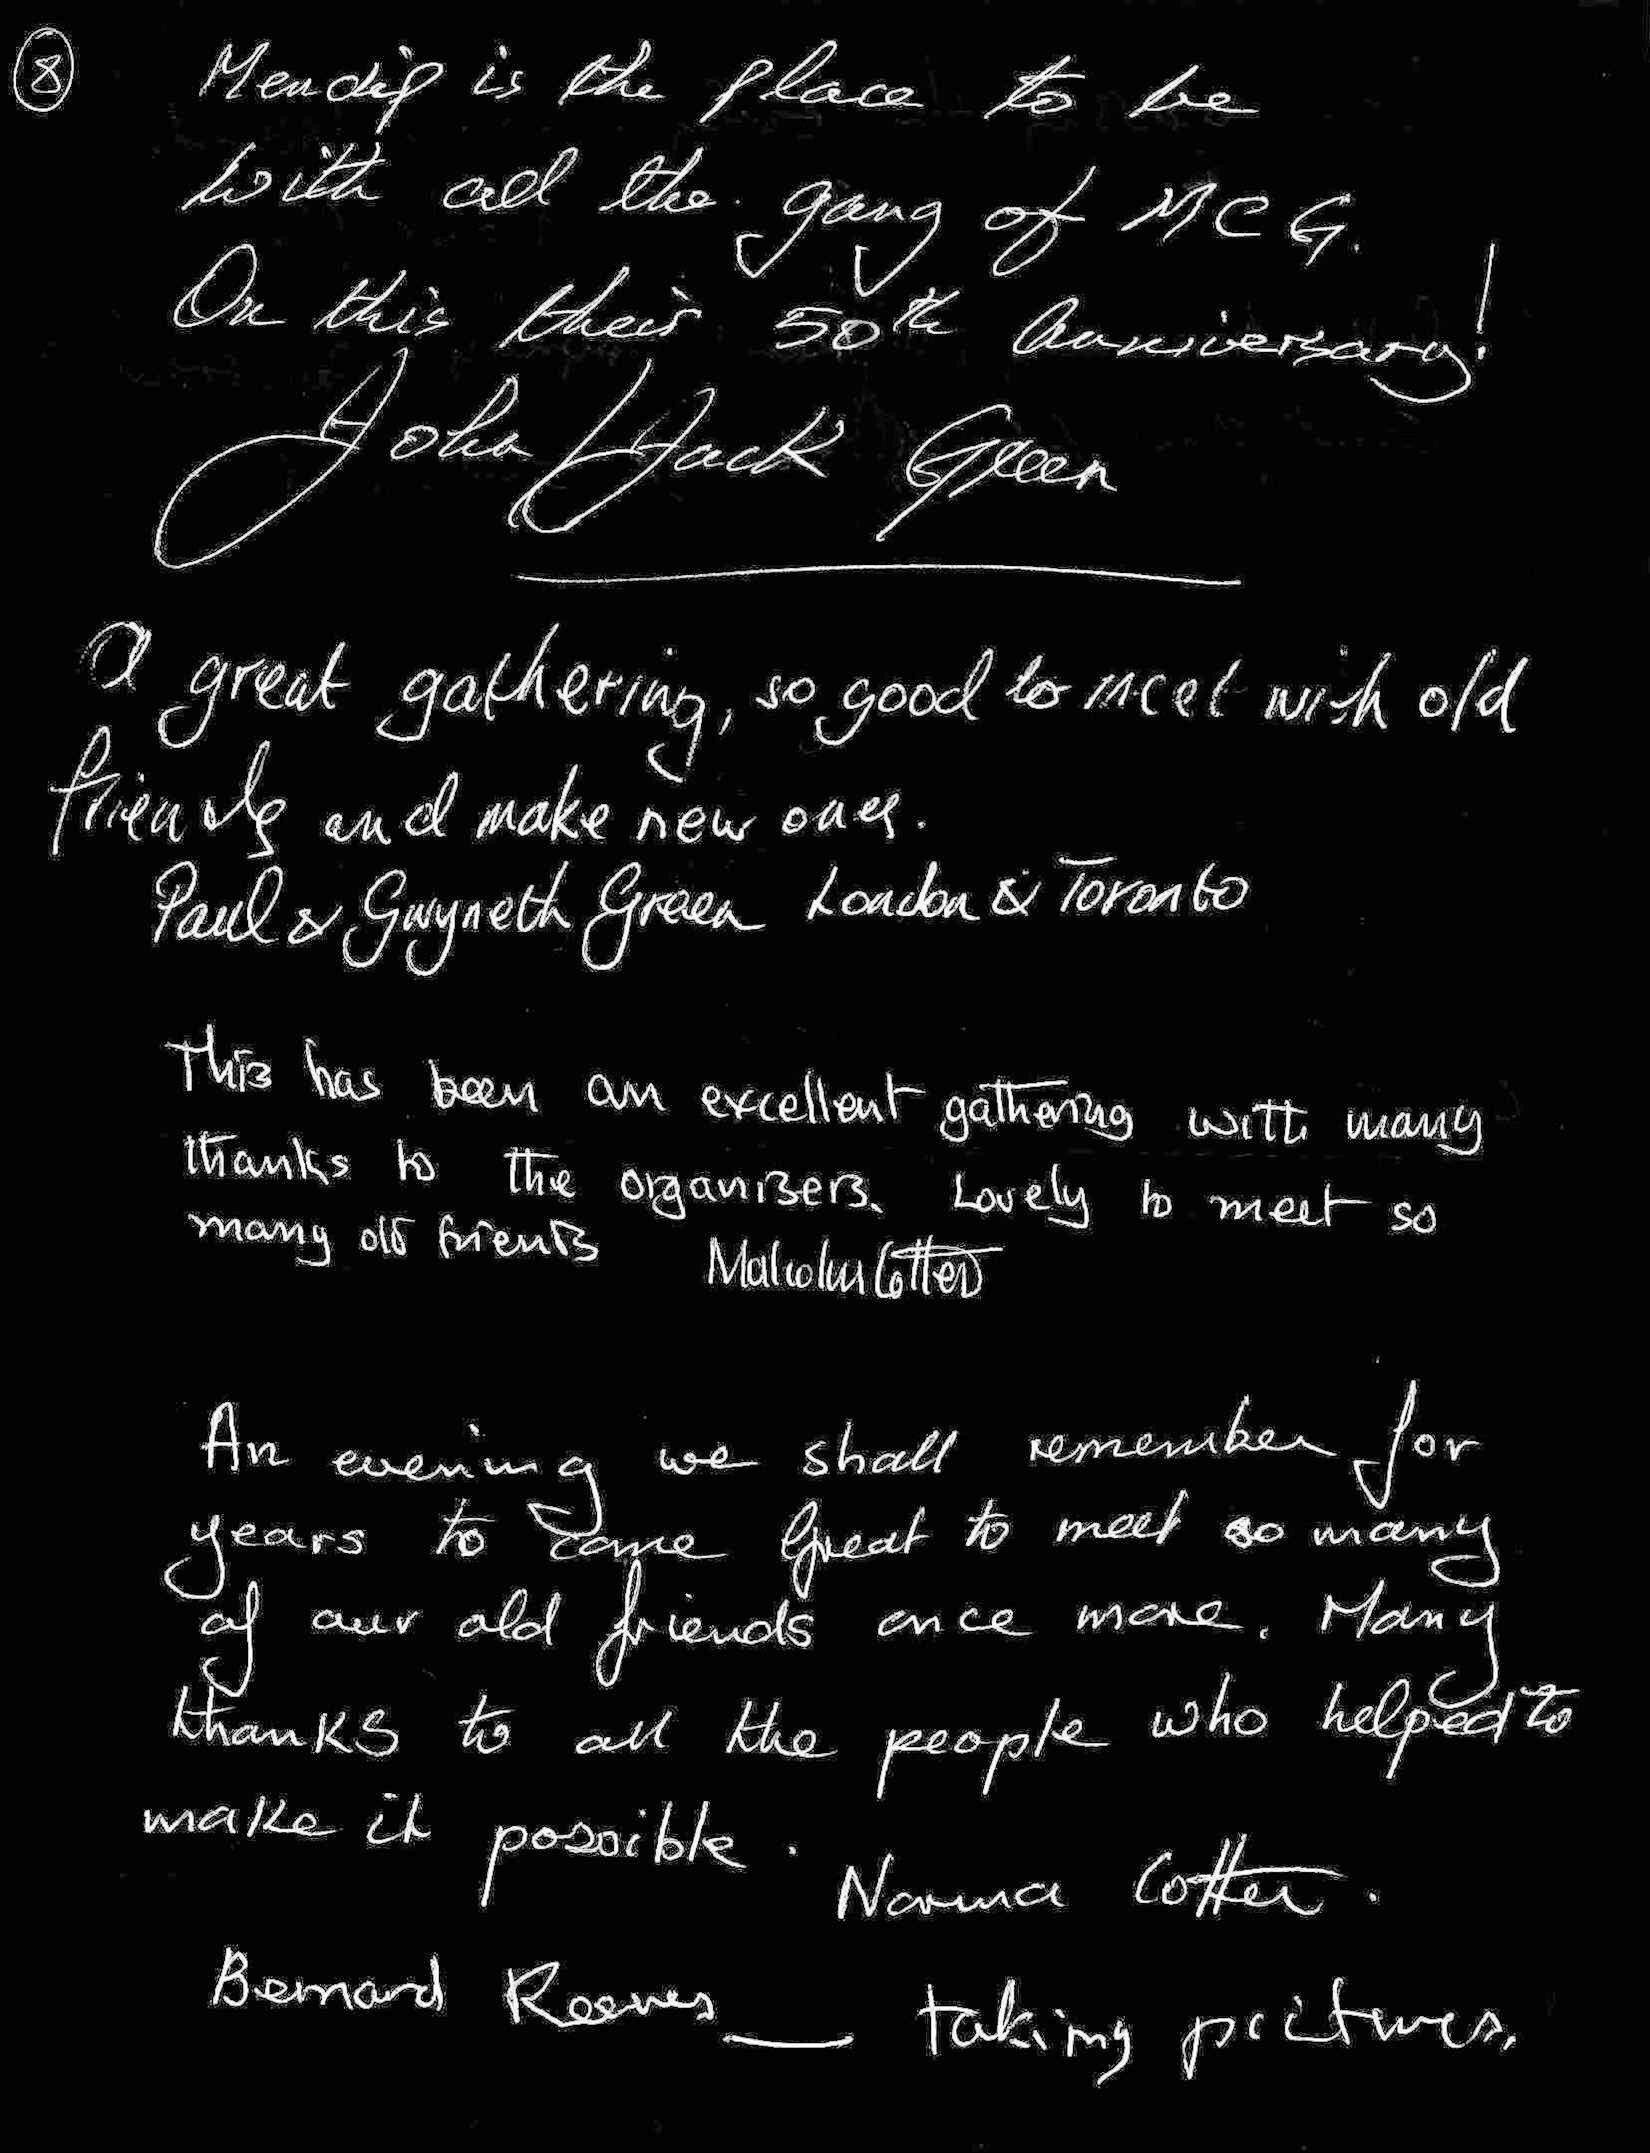 8
Mendip is the place to be
with all the gang of MCG.
On this their 50th Anniversary!
John / Jack Green
A great gathering, so good to meet with old
friends and make new ones.
Paul & Gwyneth Green London & Toronto
This has been an excellent gathering with many
thanks to the organisers. Lovely to meet so
many old friends Malcolm Cotter
An evening we shall remember for
years to come Great to meet so many
of our old friends once more. Many
thanks to all the people who helped to
make it possible. Norma Cotter.
Bernard Reeves — taking pictures.